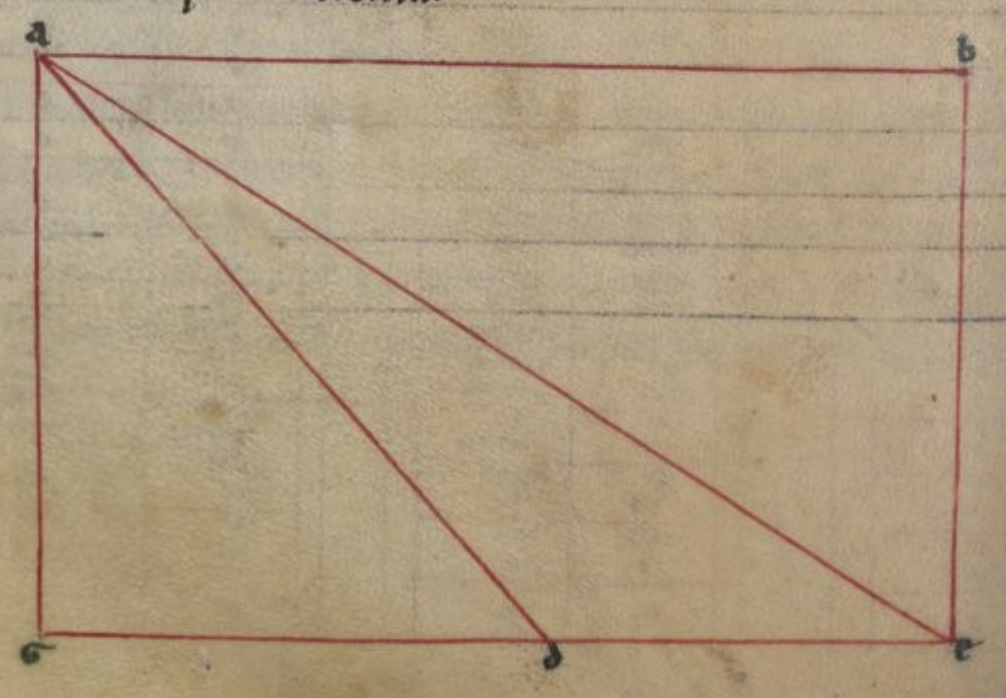 a b
c d e